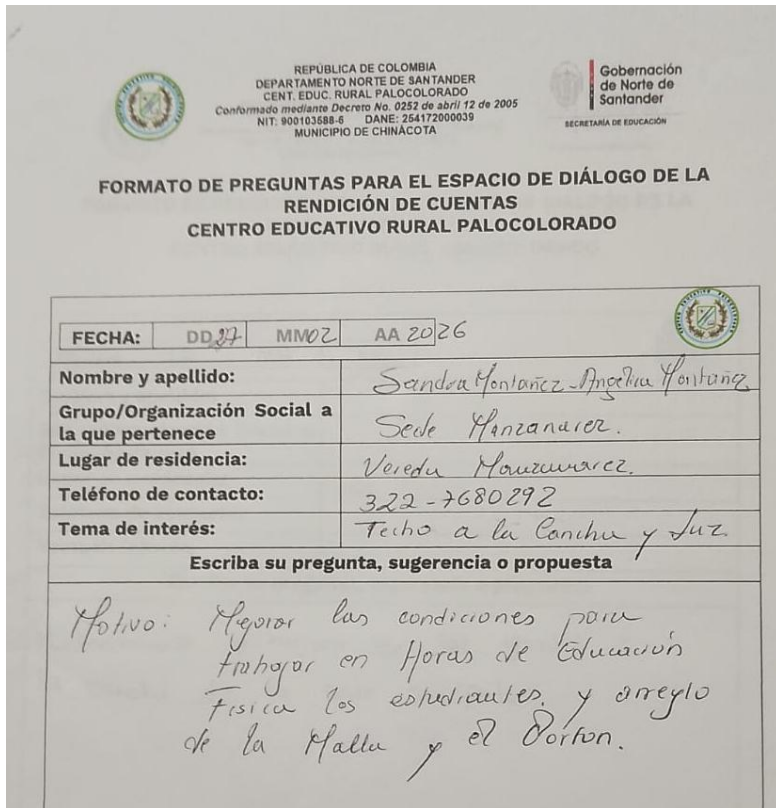 REPÚBLICA DE COLOMBIA
DEPARTAMENTO NORTE DE SANTANDER
CENT. EDUC. RURAL PALOCOLORADO
Conformado mediante Decreto No. 0252 de abril 12 de 2005
NIT: 900103588-6 DANE: 254172000039
MUNICIPIO DE CHINÁCOTA
Gobernación
de Norte de
Santander
SECRETARÍA DE EDUCACIÓN
FORMATO DE PREGUNTAS PARA EL ESPACIO DE DIÁLOGO DE LA
RENDICIÓN DE CUENTAS
CENTRO EDUCATIVO RURAL PALOCOLORADO
FECHA: DD 27 MM 02 AA 2026
Nombre y apellido: Sandra Montañez - Angelica Montañez
Grupo/Organización Social a
la que pertenece Sede Manzanarez.
Lugar de residencia: Vereda Manzanarez.
Teléfono de contacto: 322-7680292
Tema de interés: Techo a la Cancha y Luz
Escriba su pregunta, sugerencia o propuesta
Motivo: Mejorar las condiciones para
trabajar en Horas de Educación
Fisica los estudiantes. y arreglo
de la Malla y el Porton.